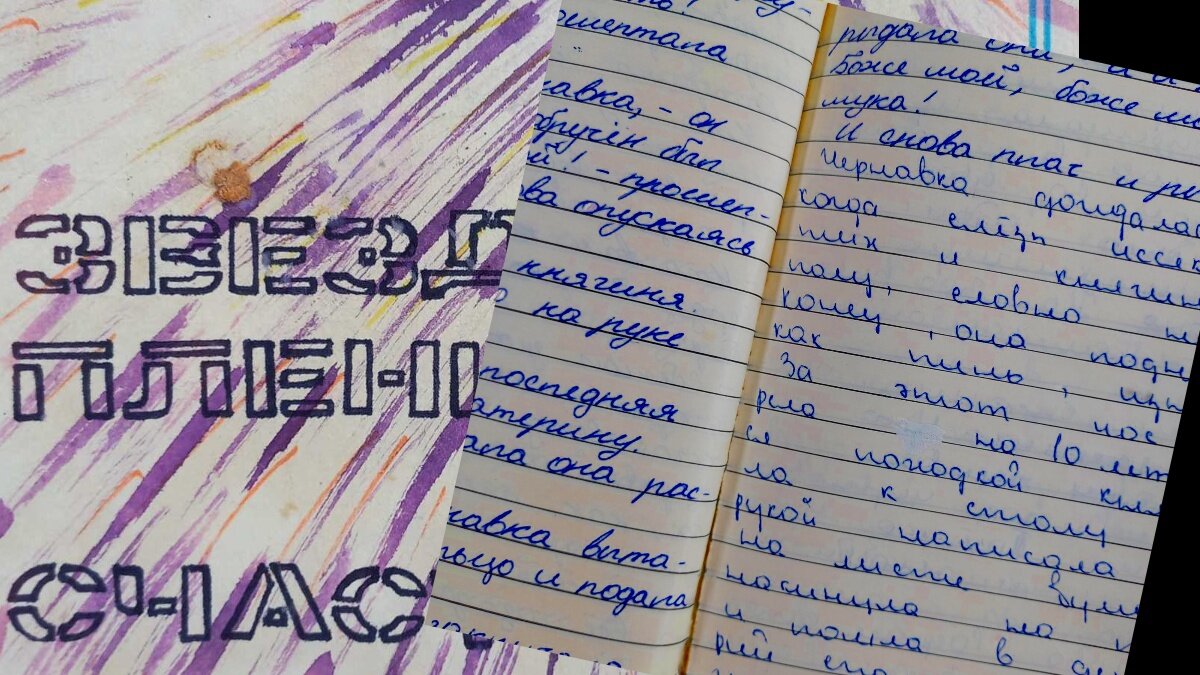 ЗВЕЗД
ПЛЕН
СЧАС
шептала
авка, - он
обручён был
 й! - прошеп-
ва опускаясь
княгиня.
на руке
последняя
атерину.
ала она рас-
навка выта-
льцо и подала
рыдала
Боже мой, боже мо
мука!
И снова плач и ры
Чернавка дождалас
когда слёзы иссяк
тих и княгин
полу, словно н
кому, она подн
как тень, изм
За этот час
рела на 10 лет
ся походкой кня
ла к столу
рукой написала
на листе бума
накинула на п
и пошла в де
рий спа